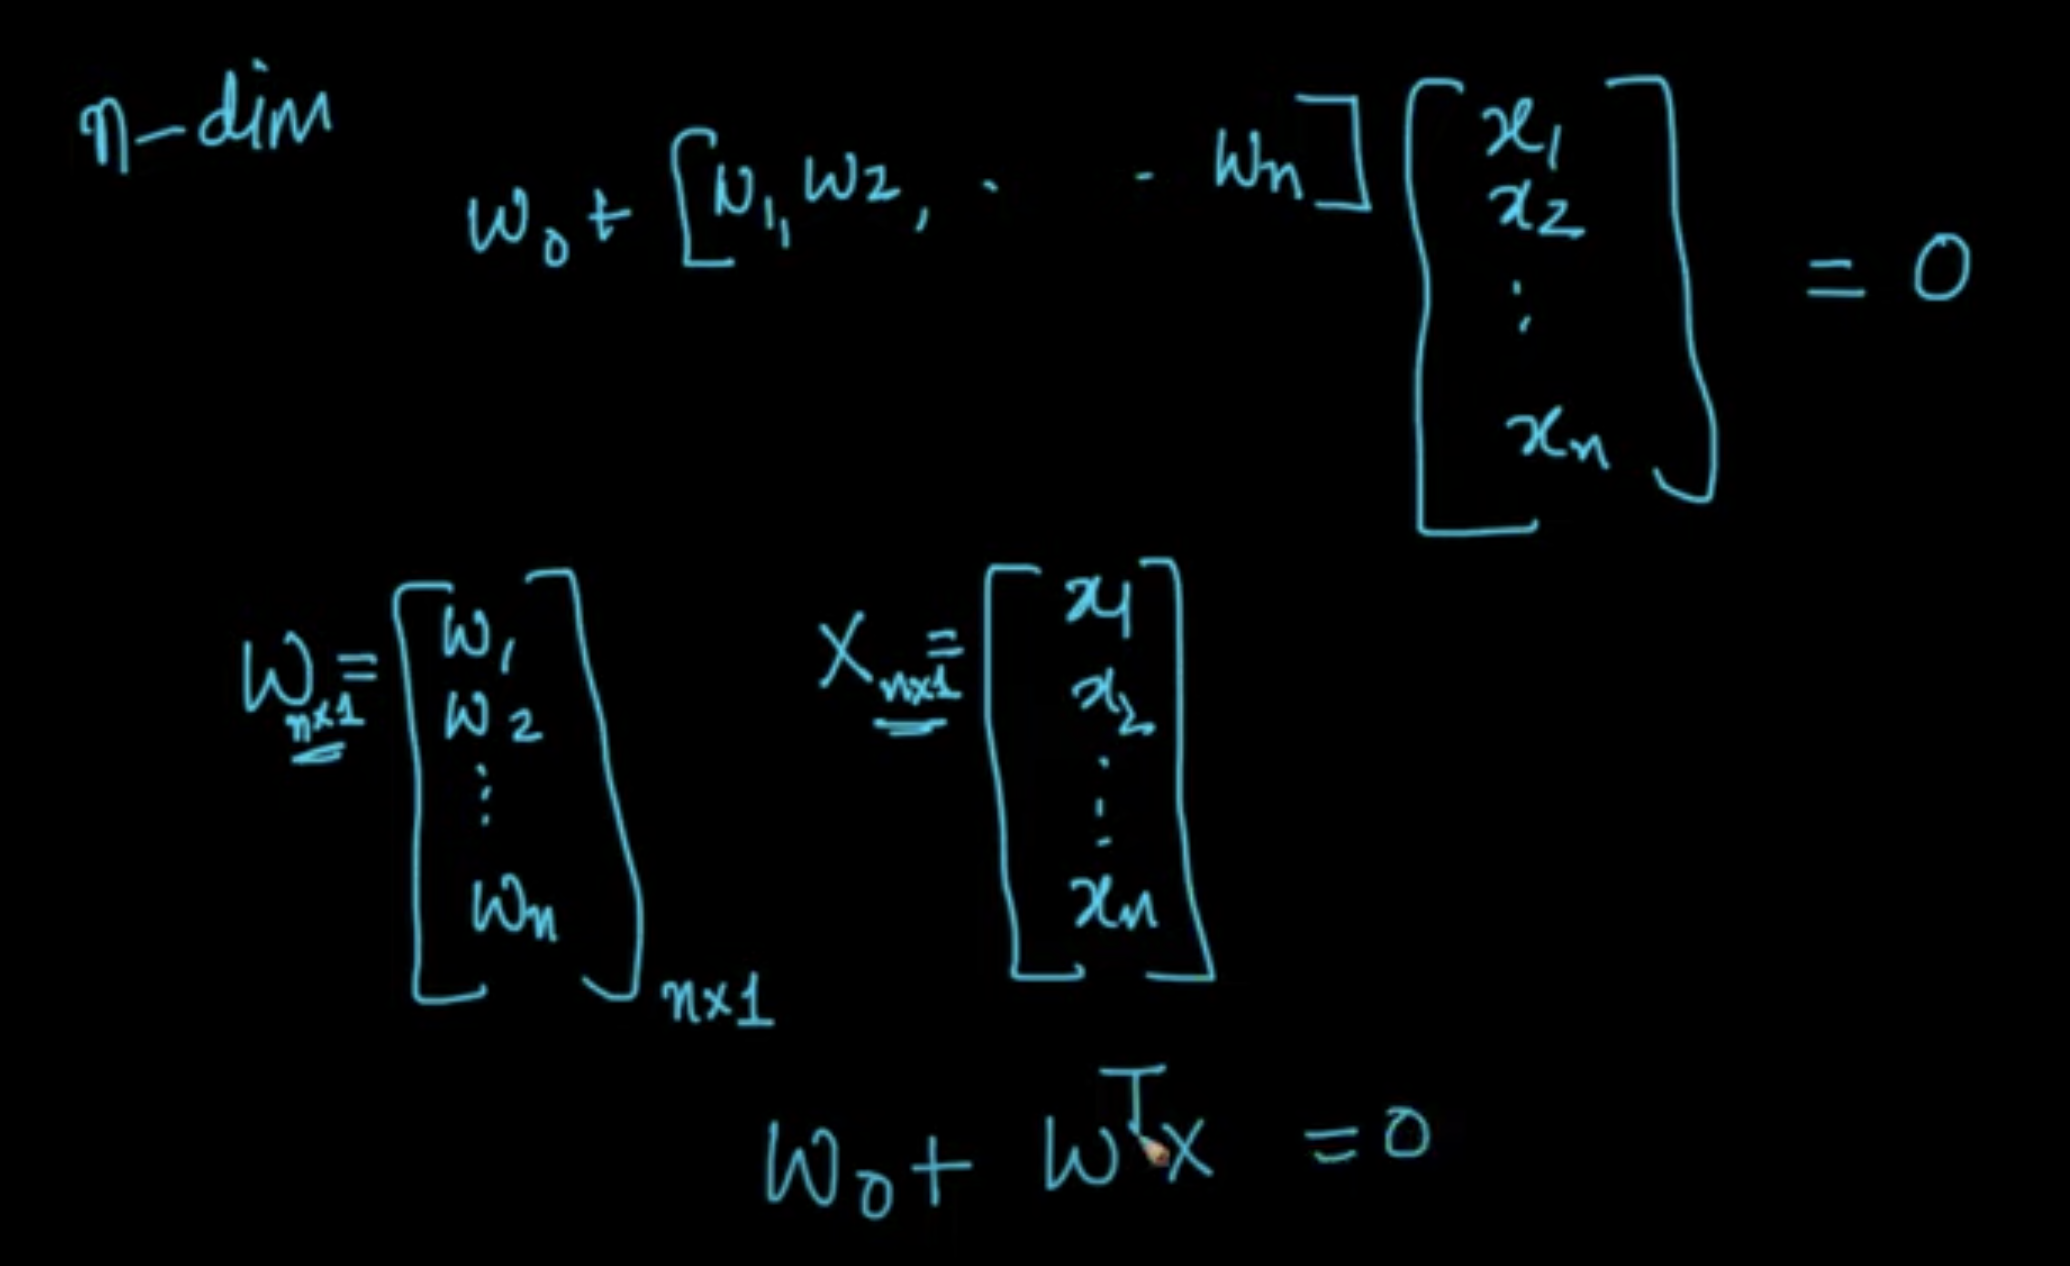 n-dim
w₀ + [w₁, w₂, . . wₙ] [x₁ x₂ ⋮ xₙ] = 0
W n×1 = [w₁ w₂ ⋮ wₙ] n×1
X n×1 = [x₁ x₂ ⋮ xₙ]
w₀ + wᵀx = 0